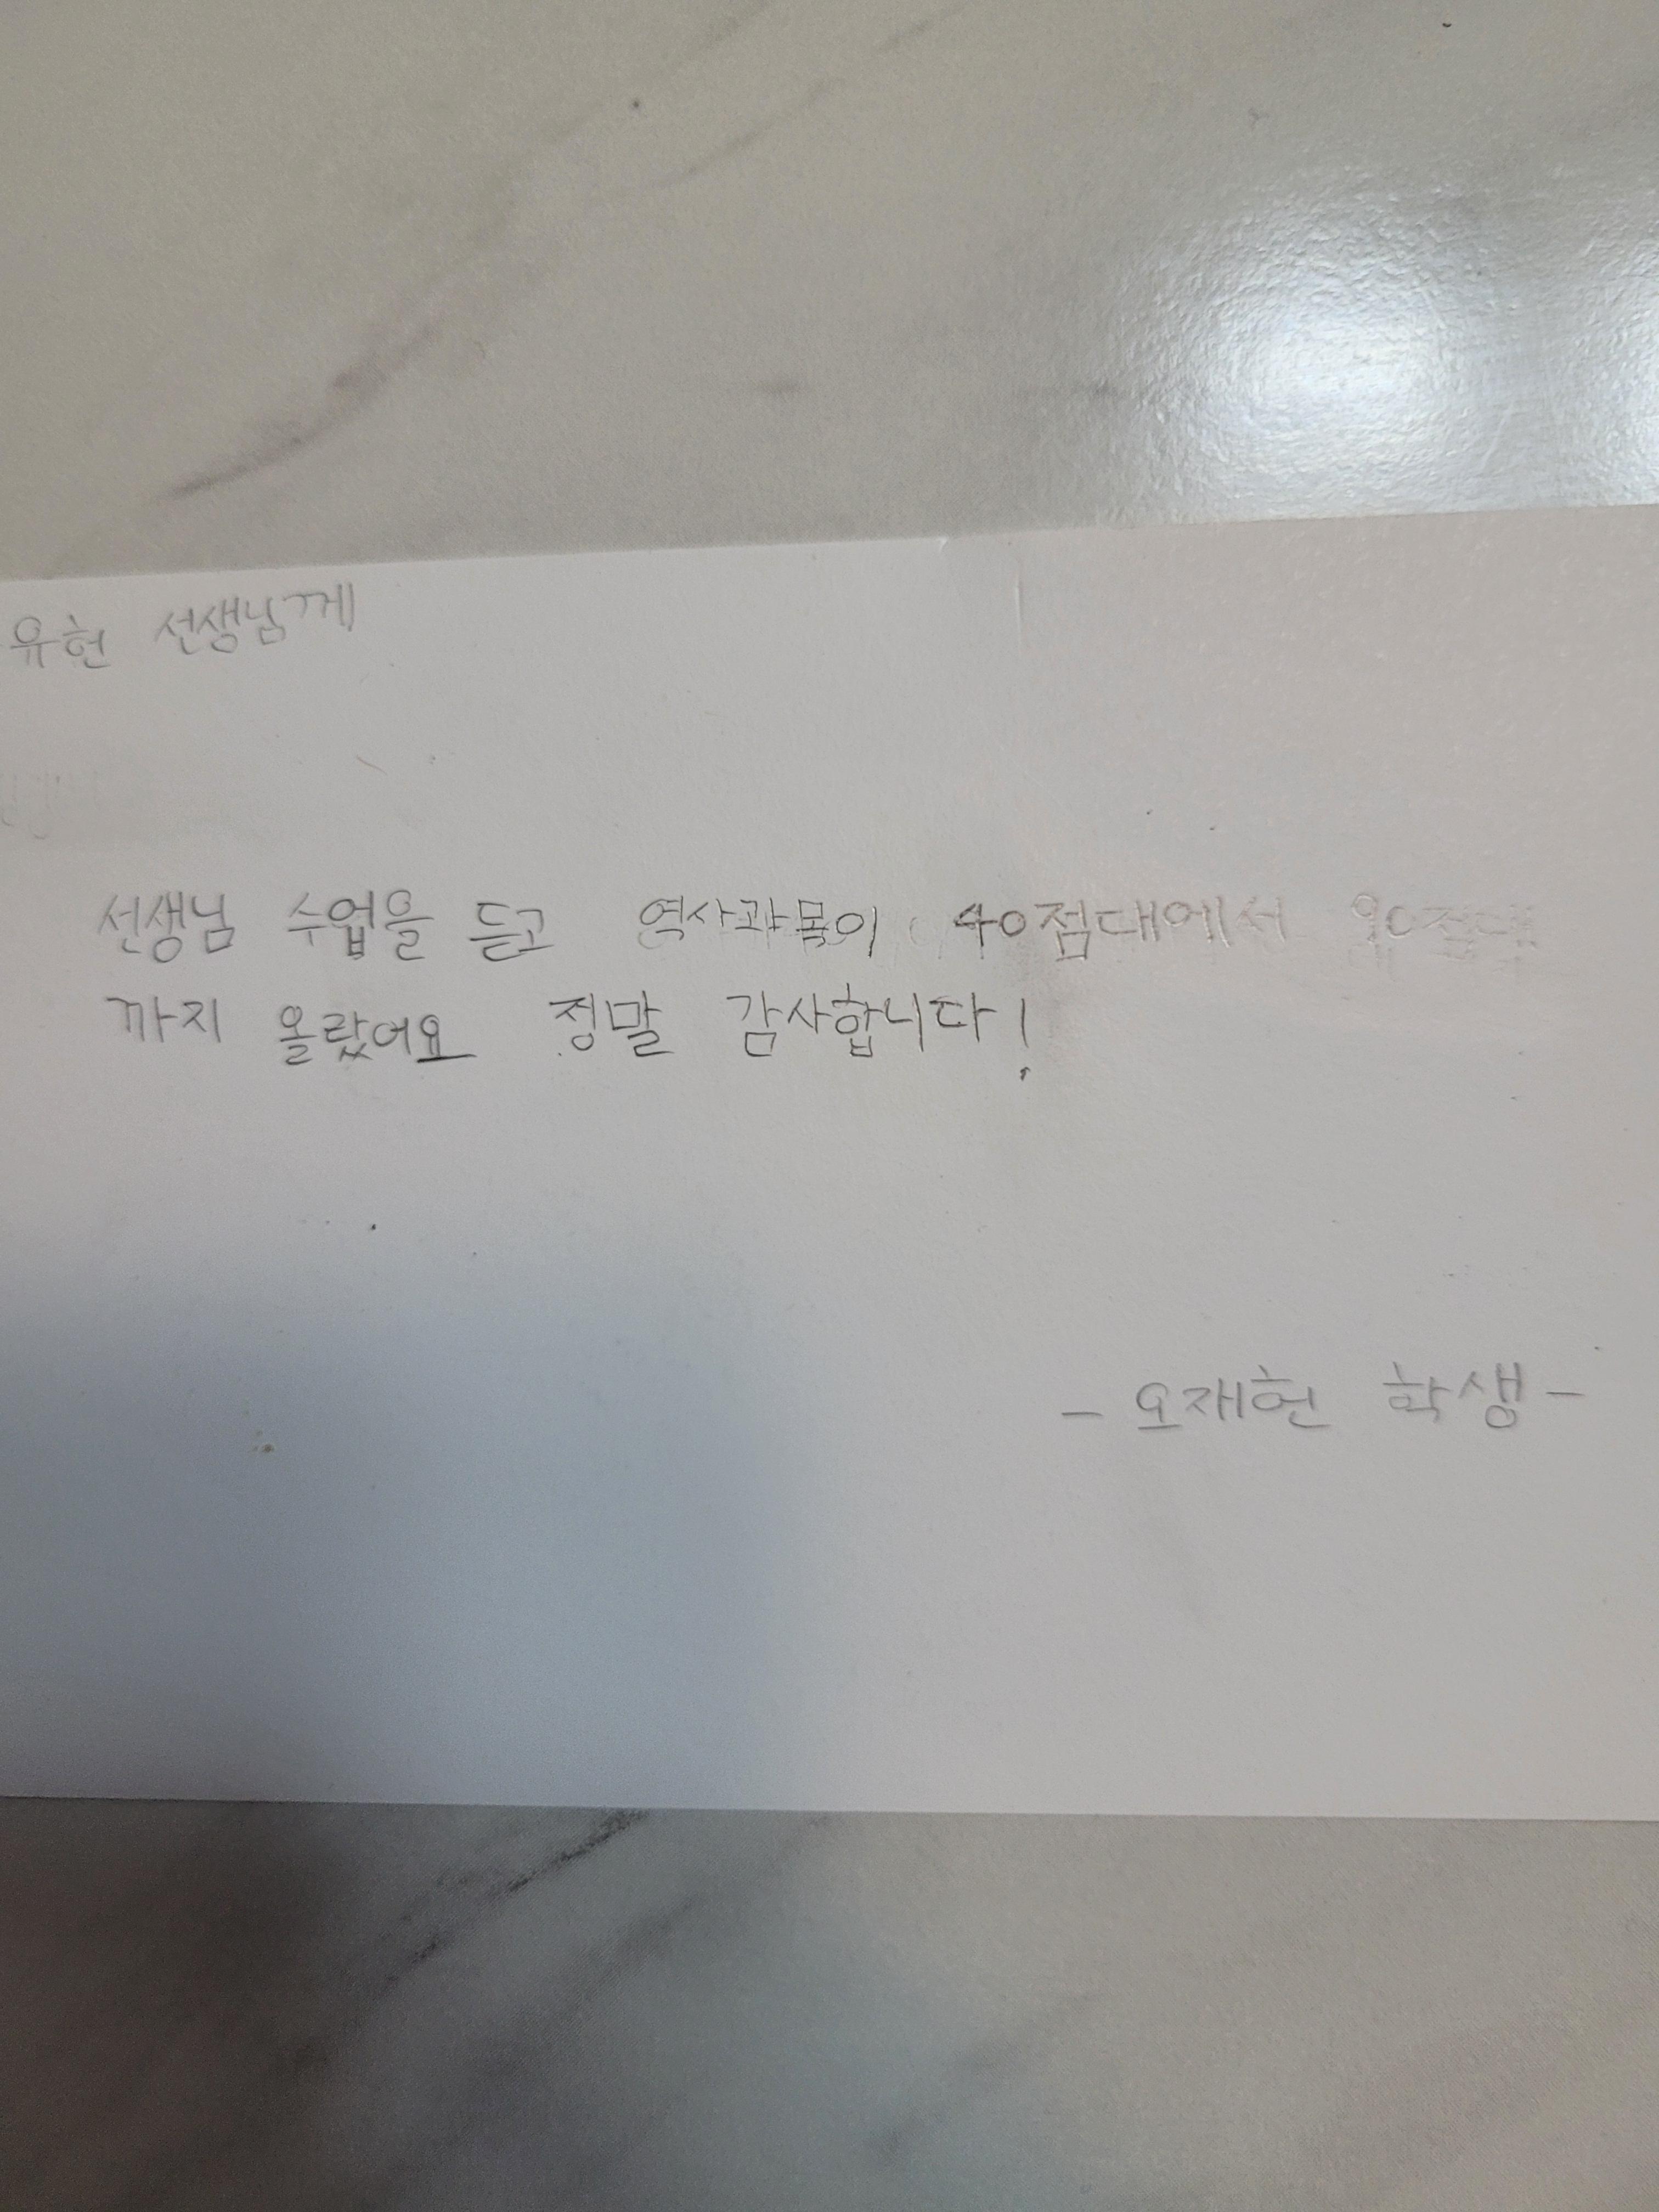 유헌 선생님께
선생님 수업을 듣고 역사과목이 40점대에서 90점대
까지 올랐어요 정말 감사합니다!
- 오재헌 학생 -